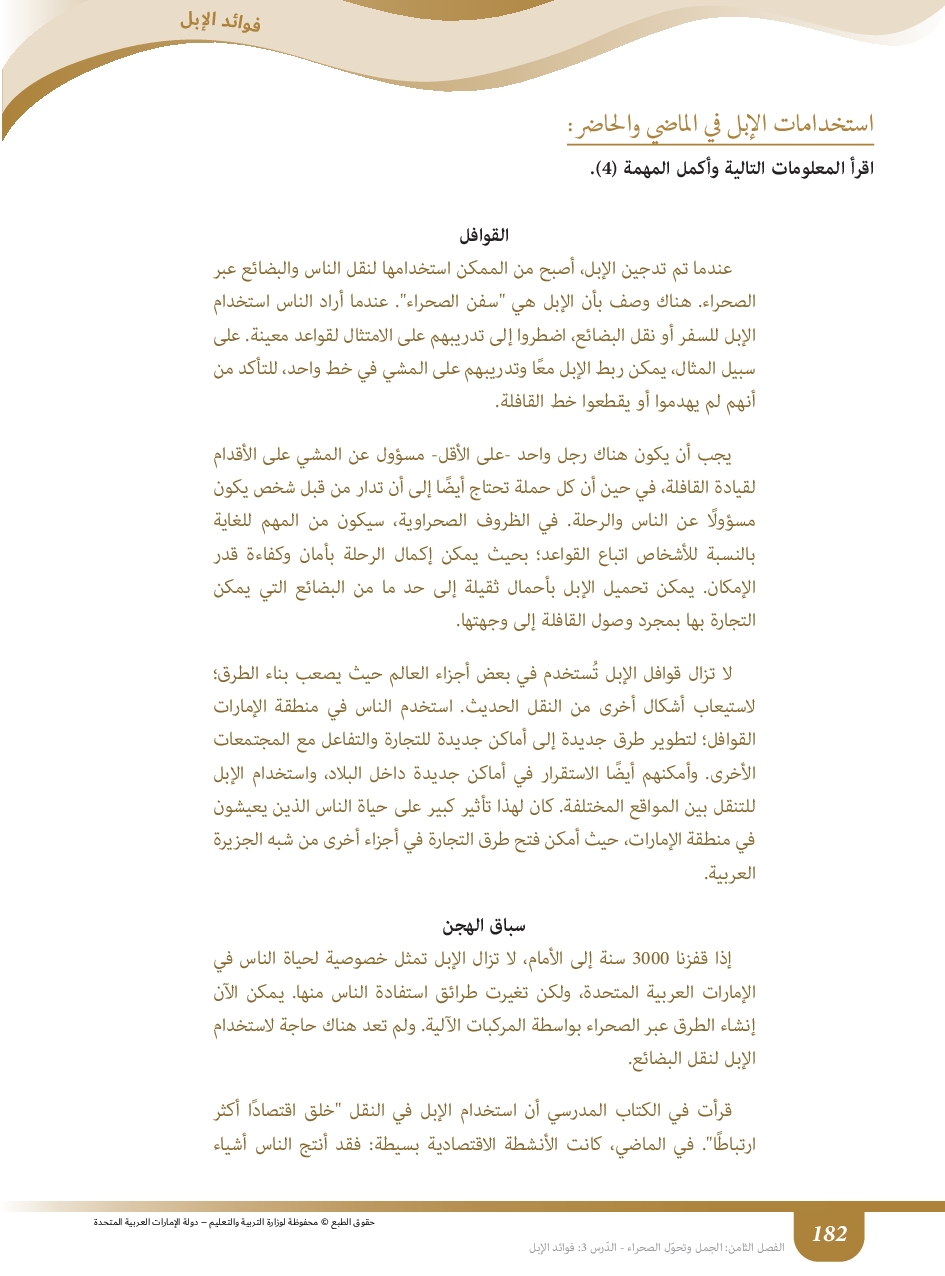 فوائد الإبل
استخدامات الإبل في الماضي والحاضر :
اقرأ المعلومات التالية وأكمل المهمة (4).
القوافل
عندما تم تدجين الإبل، أصبح من الممكن استخدامها لنقل الناس والبضائع عبر
الصحراء. هناك وصف بأن الإبل هي "سفن الصحراء". عندما أراد الناس استخدام
الإبل للسفر أو نقل البضائع، اضطروا إلى تدريبهم على الامتثال لقواعد معينة. على
سبيل المثال، يمكن ربط الإبل معًا وتدريبهم على المشي في خط واحد، للتأكد من
أنهم لم يهدموا أو يقطعوا خط القافلة.
يجب أن يكون هناك رجل واحد -على الأقل- مسؤول عن المشي على الأقدام
لقيادة القافلة، في حين أن كل حملة تحتاج أيضًا إلى أن تدار من قبل شخص يكون
مسؤولًا عن الناس والرحلة. في الظروف الصحراوية، سيكون من المهم للغاية
بالنسبة للأشخاص اتباع القواعد؛ بحيث يمكن إكمال الرحلة بأمان وكفاءة قدر
الإمكان. يمكن تحميل الإبل بأحمال ثقيلة إلى حد ما من البضائع التي يمكن
التجارة بها بمجرد وصول القافلة إلى وجهتها.
لا تزال قوافل الإبل تُستخدم في بعض أجزاء العالم حيث يصعب بناء الطرق؛
لاستيعاب أشكال أخرى من النقل الحديث. استخدم الناس في منطقة الإمارات
القوافل؛ لتطوير طرق جديدة إلى أماكن جديدة للتجارة والتفاعل مع المجتمعات
الأخرى. وأمكنهم أيضًا الاستقرار في أماكن جديدة داخل البلاد، واستخدام الإبل
للتنقل بين المواقع المختلفة. كان لهذا تأثير كبير على حياة الناس الذين يعيشون
في منطقة الإمارات، حيث أمكن فتح طرق التجارة في أجزاء أخرى من شبه الجزيرة
العربية.
سباق الهجن
إذا قفزنا 3000 سنة إلى الأمام، لا تزال الإبل تمثل خصوصية لحياة الناس في
الإمارات العربية المتحدة، ولكن تغيرت طرائق استفادة الناس منها. يمكن الآن
إنشاء الطرق عبر الصحراء بواسطة المركبات الآلية. ولم تعد هناك حاجة لاستخدام
الإبل لنقل البضائع.
قرأت في الكتاب المدرسي أن استخدام الإبل في النقل "خلق اقتصادًا أكثر
ارتباطًا". في الماضي، كانت الأنشطة الاقتصادية بسيطة: فقد أنتج الناس أشياء
حقوق الطبع © محفوظة لوزارة التربية والتعليم – دولة الإمارات العربية المتحدة
182
الفصل الثامن: الجمل وتحوّل الصحراء - الدّرس 3: فوائد الإبل